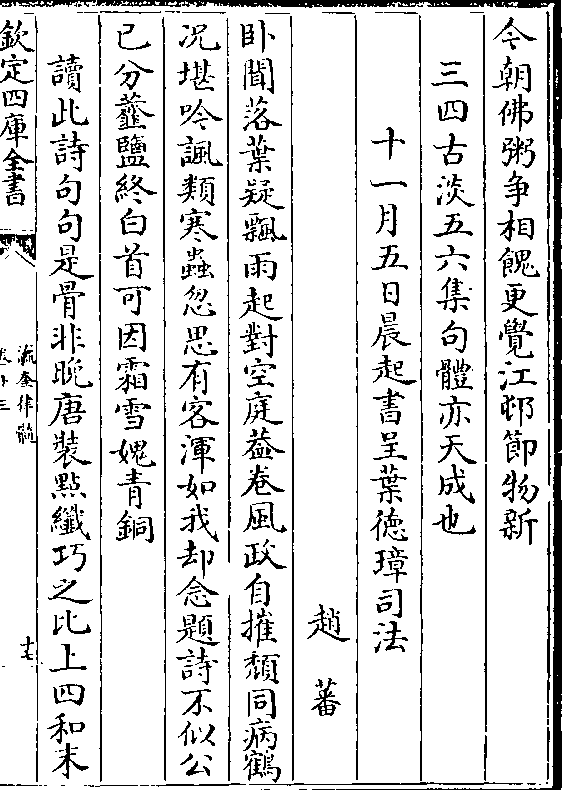 今朝佛粥争相餽更覺江邨節物新
三四古淡五六集句體亦天成也
十一月五日晨起書呈葉德璋司法
趙蕃
卧聞落葉疑飄雨起對空庭葢卷風政自摧頽同病鶴
况堪吟諷類寒蟲忽思有客渾如我却念題詩不似公
已分虀鹽終白首可因霜雪媿青銅
讀此詩句句是骨非晚唐裝㸃纎巧之比上四和末
欽定四庫全書
瀛奎律髓
卷十三
十七